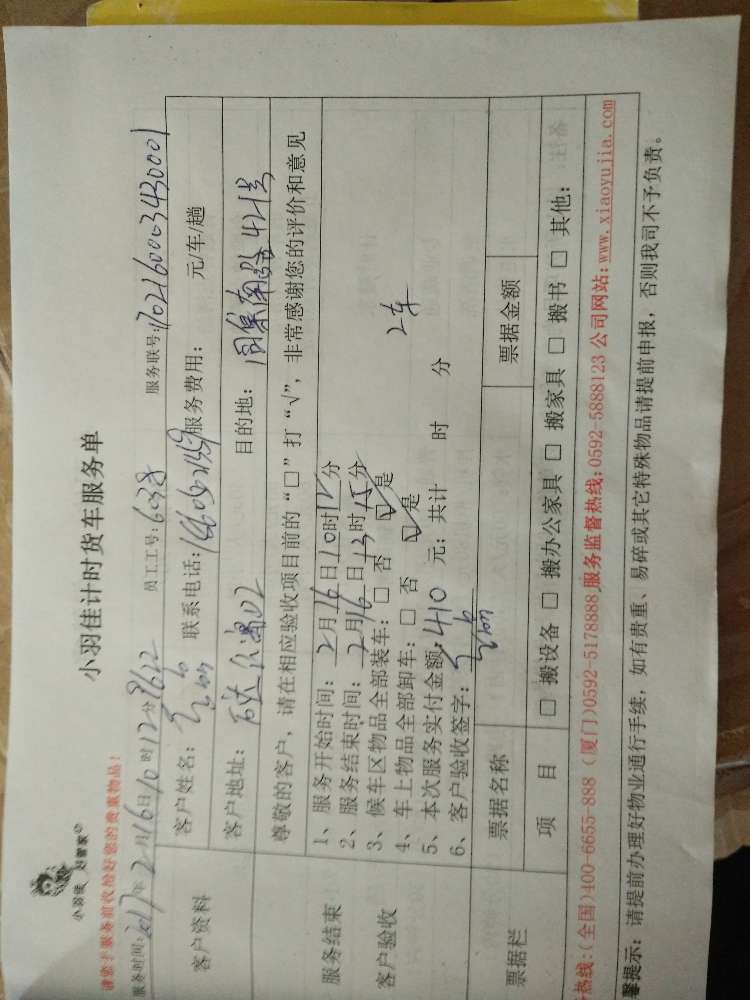 小羽佳 好管家
小羽佳计时货车服务单
请您于服务前收拾好您的贵重物品!
服务时间:2017年2月16日10时12分 员工工号:6038 服务联号:1702160003430001
客户资料
客户姓名: 联系电话: 服务费用: 元/车/趟
客户地址: 目的地: 同集南路421号
尊敬的客户, 请在相应验收项目前的“□”打“√”, 非常感谢您的评价和意见
服务结束
客户验收
1、服务开始时间: 2月16日10时12分
2、服务结束时间: 2月16日13时15分
3、候车区物品全部装车: □ 否 ☑ 是
4、车上物品全部卸车: □ 否 ☑ 是 2车
5、本次服务实付金额: 410 元; 共计 时 分
6、客户验收签字:
票据栏
票据名称 票据金额
项 目 □ 搬设备 □ 搬办公家具 □ 搬家具 □ 搬书 □ 其他:
热线:(全国)400-6655-888 (厦门)0592-5178888 服务监督热线:0592-5888123 公司网站:www.xiaoyujia.com
馨提示: 请提前办理好物业通行手续, 如有贵重、易碎或其它特殊物品请提前申报, 否则我司不予负责。